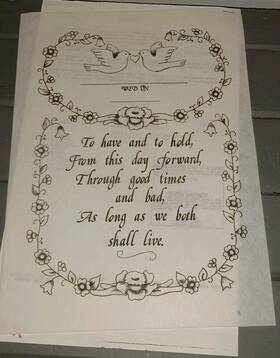 WED IN
To have and to hold,
From this day forward,
Through good times
and bad,
As long as we both
shall live.